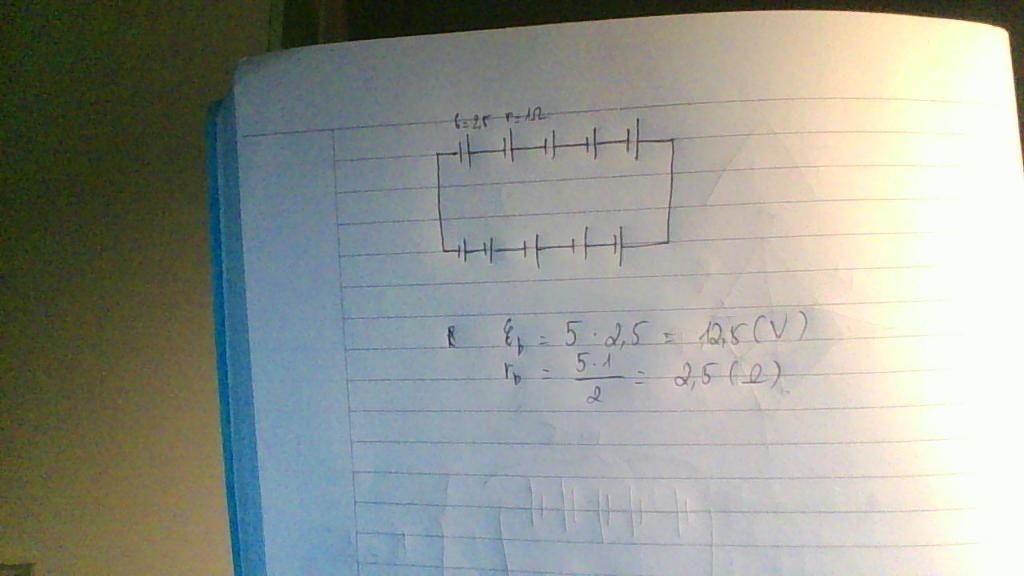 ξ=2,5 r=1Ω
ξb = 5 · 2,5 = 12,5 (V)
rb = 5·1/2 = 2,5 (Ω)